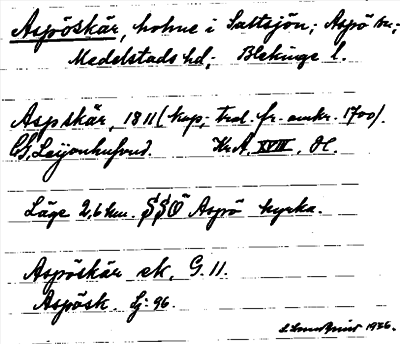 Aspöskär, holme i Saltsjön; Aspö sn;
Medelstads hd; Blekinge l.
Aspskär, 1811 (kop; trol. fr. omkr. 1700).
C G, Leijonhufvud. Kr. A. XVIII,
Läge 2,6 km. SSÖ Aspö kyrka.
Aspöskär ek, G. 11.
Aspösk. Sj: 96.
1936.